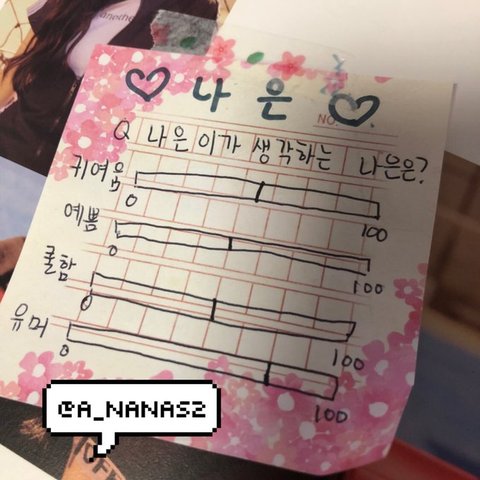 나은
NO.
Q 나은이가 생각하는 나은은?
귀여움
0 100
예쁨
0 100
쿨함
0 100
유머
0 100
@A_NANAS2